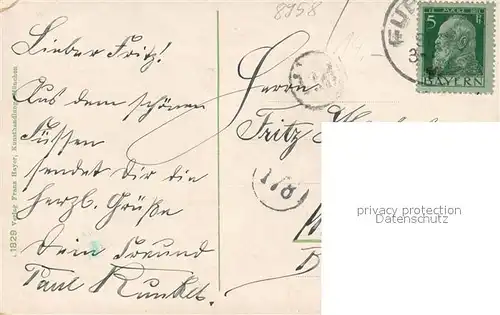 8958
Lieber Fritz!
Aus dem schönen
Füssen
sendet Dir die
herzl. Grüße
Dein Freund
Paul Kunkel.
1829 Verlag Franz Hayer, Kunsthandlung, München.
Herrn
Fritz
5 Pf
BAYERN
privacy protection
Datenschutz